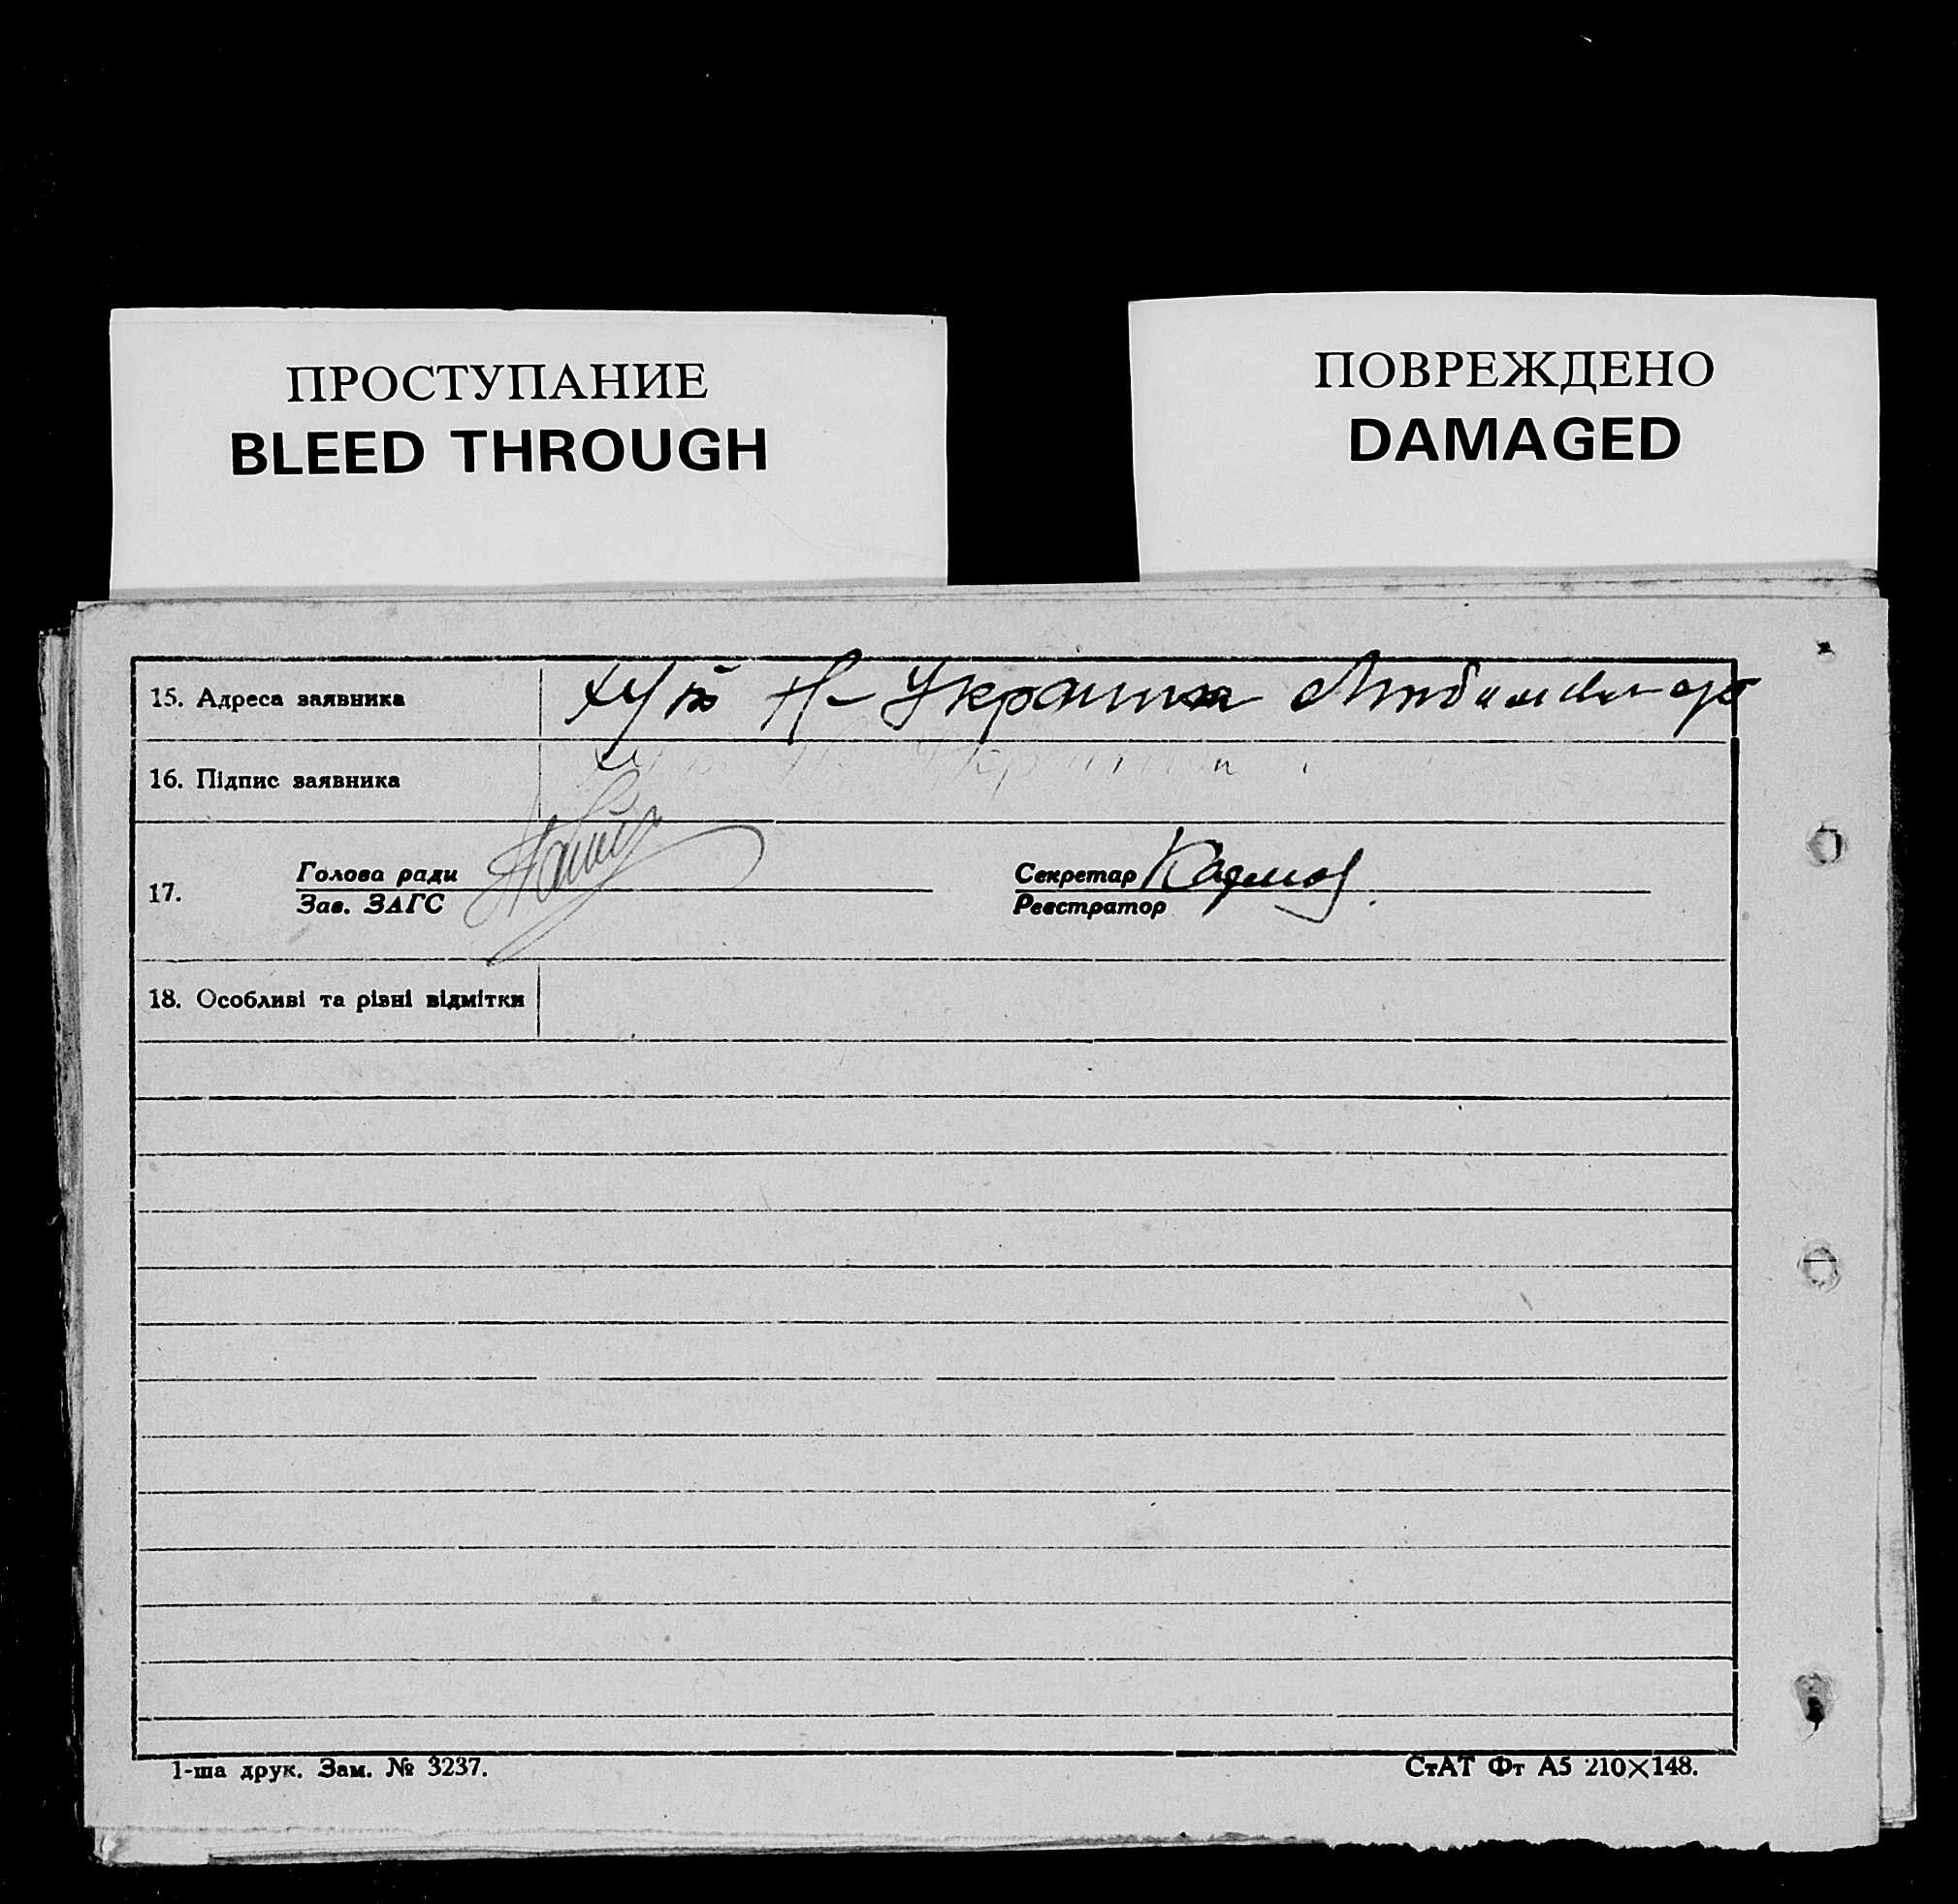 ПРОСТУПАНИЕ
BLEED THROUGH
ПОВРЕЖДЕНО
DAMAGED
15. Адреса заявника Н-Украинка
16. Підпис заявника
17. Голова ради Секретар
Зав. ЗАГС Реєстратор
18. Особливі та різні відмітки
1-ша друк. Зам. № 3237. СтАТ Фт А5 210×148.